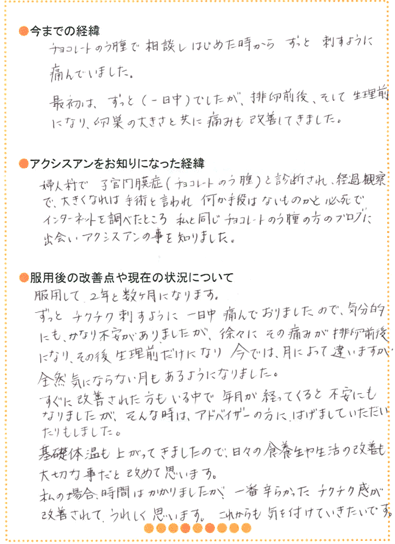 ●今までの経緯
チョコレートのう腫で相談しはじめた時から ずっと 刺すように
痛んでいました。
最初は、ずっと(一日中)でしたが、排卵前後、そして生理前
になり、卵巣の大きさと共に痛みも改善してきました。
●アクシスアンをお知りになった経緯
婦人科で 子宮内膜症(チョコレートのう腫)と診断され、経過観察
で、大きくなれば手術と言われ 何か手段はないものかと必死で
インターネットを調べたところ 私と同じチョコレートのう腫の方のブログに
出会いアクシスアンの事を知りました。
●服用後の改善点や現在の状況について
服用して 2年と数ヶ月になります。
ずっと チクチク刺すように 一日中 痛んでおりましたので、気分的
にも、かなり不安がありましたが、徐々に その痛みが 排卵前後
になり、その後 生理前だけになり 今では、月によって違いますが
全然気にならない月もあるようになりました。
すぐに改善された方もいる中で 年月が経ってくると不安にも
なりましたが、そんな時は、アドバイザーの方に、はげましていただい
たりもしました。
基礎体温も上がってきましたので、日々の食養生や生活の改善も
大切な事だと改めて思います。
私の場合、時間はかかりましたが、一番辛かったチクチク感が
改善されて、うれしく思います。 これからも気を付けていきたいです。